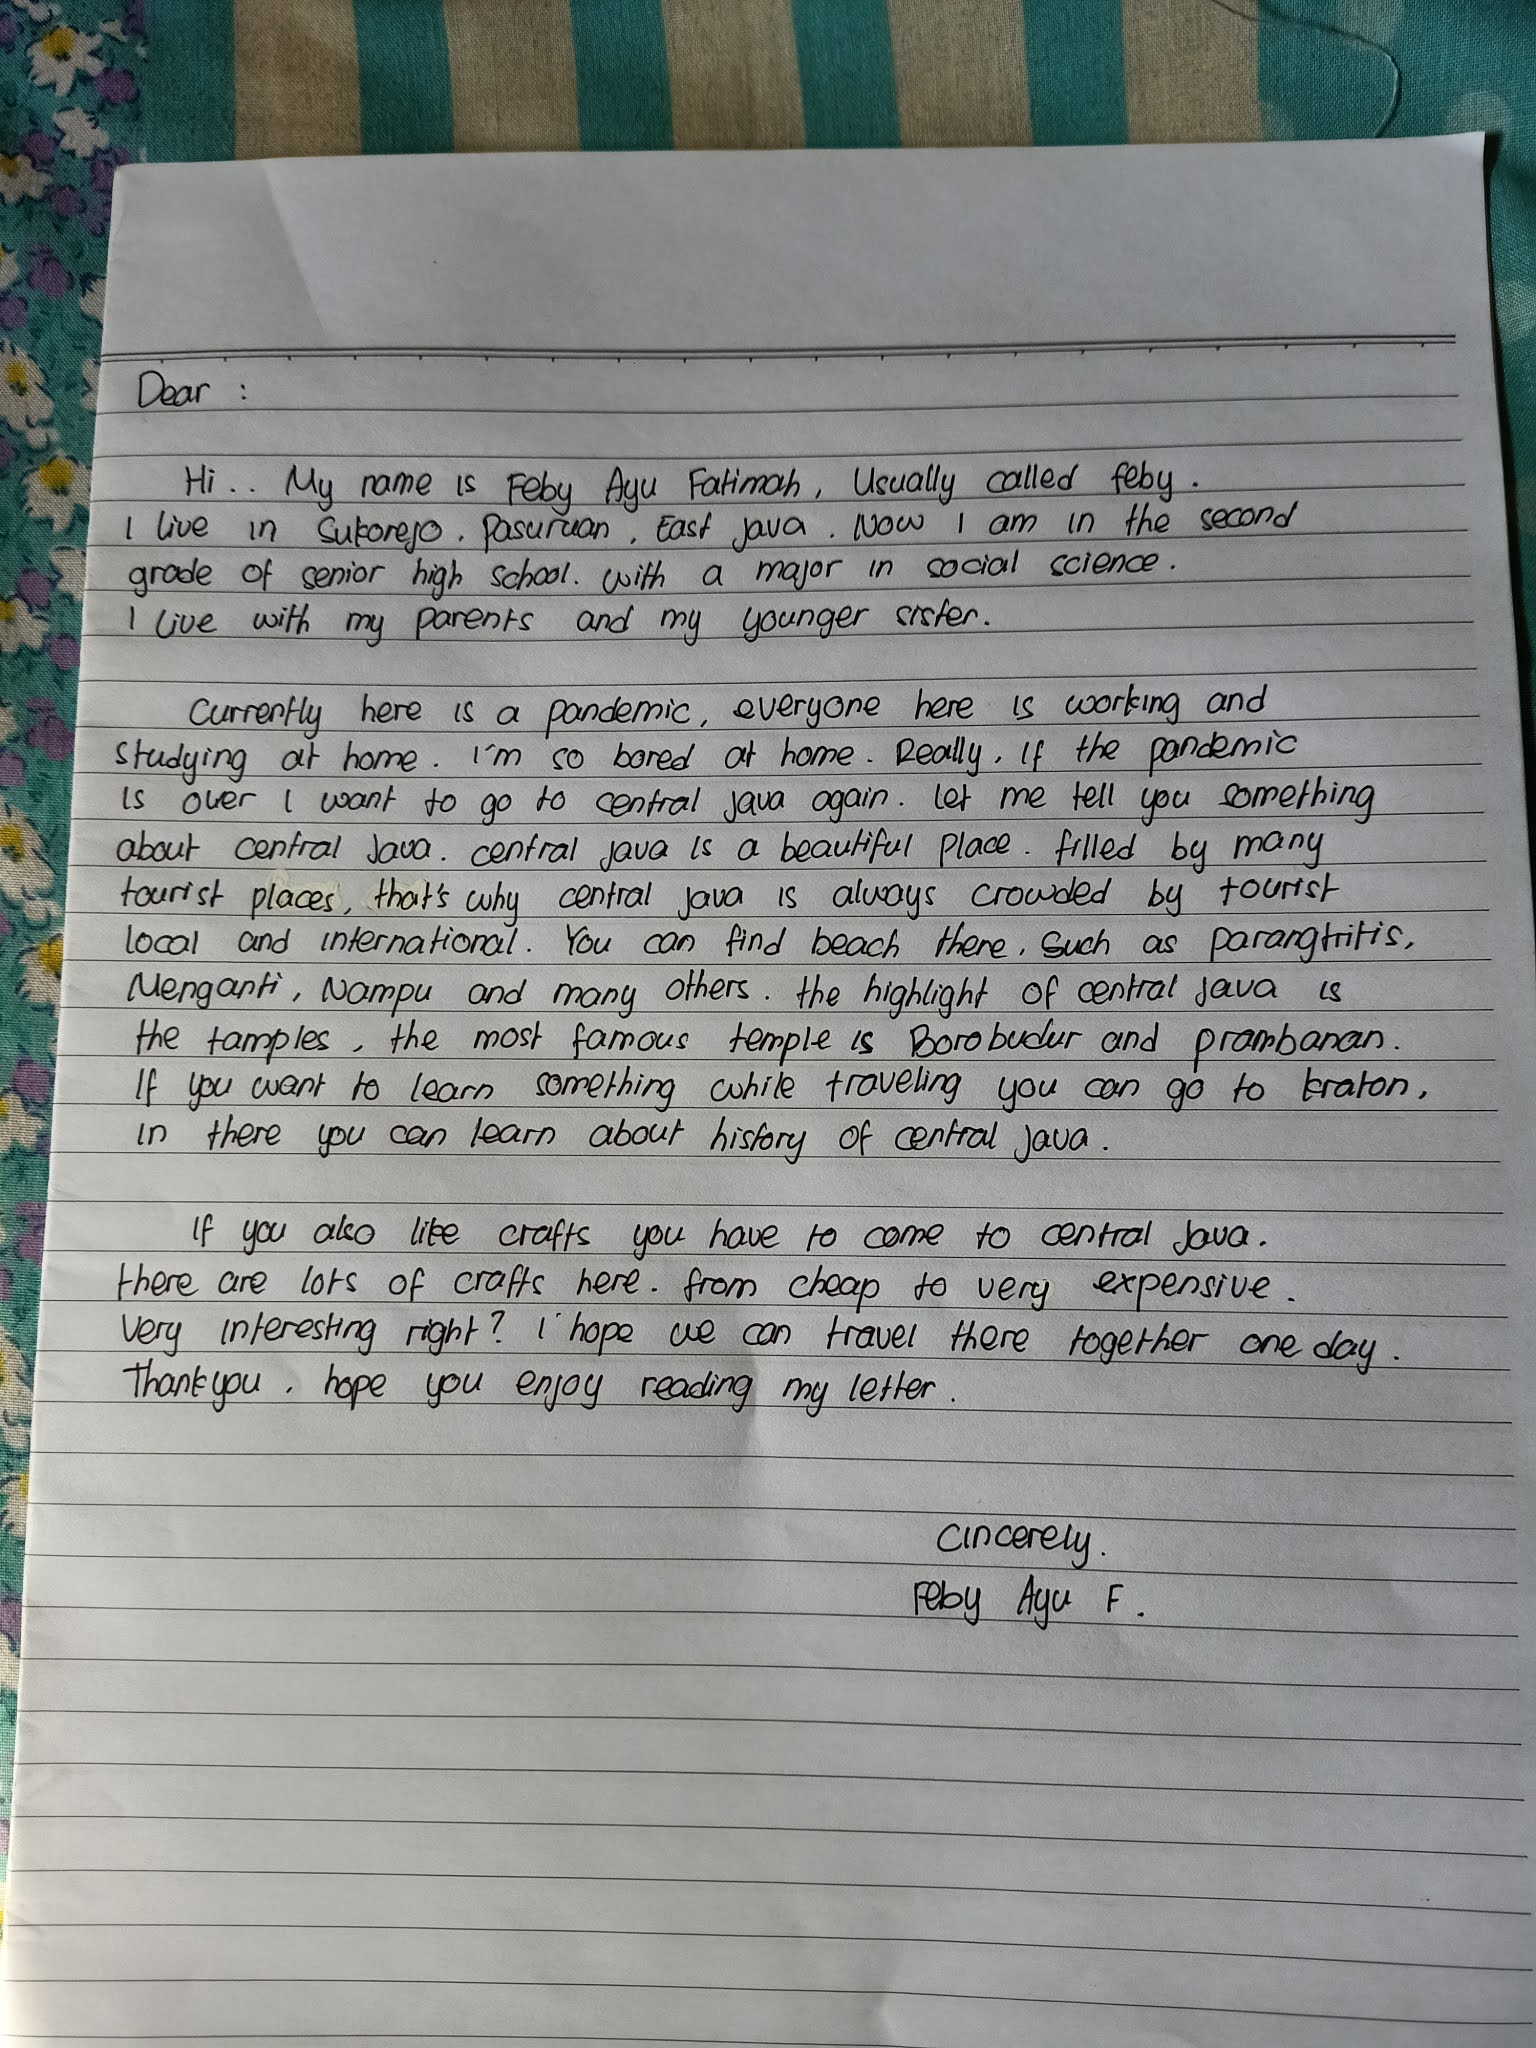 Dear :
Hi.. My name is Feby Ayu Fatimah, Usually called feby.
I live in Sukorejo. Pasuruan, East Java. Now I am in the second
grade of senior high school. with a major in social science.
I live with my parents and my younger sister.
Currently here is a pandemic, everyone here is working and
studying at home. I'm so bored at home. Really, If the pandemic
is over I want to go to central java again. let me tell you something
about central Java. central java is a beautiful place. filled by many
tourist places, that's why central java is always crowded by tourist
local and international. You can find beach there, such as parangtritis,
Menganti, Nampu and many others. the highlight of central Java is
the tamples, the most famous temple is Borobudur and prambanan.
If you want to learn something while traveling you can go to kraton,
in there you can learn about history of central java.
If you also like crafts you have to come to central Java.
there are lots of crafts here. from cheap to very expensive.
Very interesting right? i hope we can travel there together one day.
Thankyou, hope you enjoy reading my letter.
Cincerely.
Feby Ayu F.